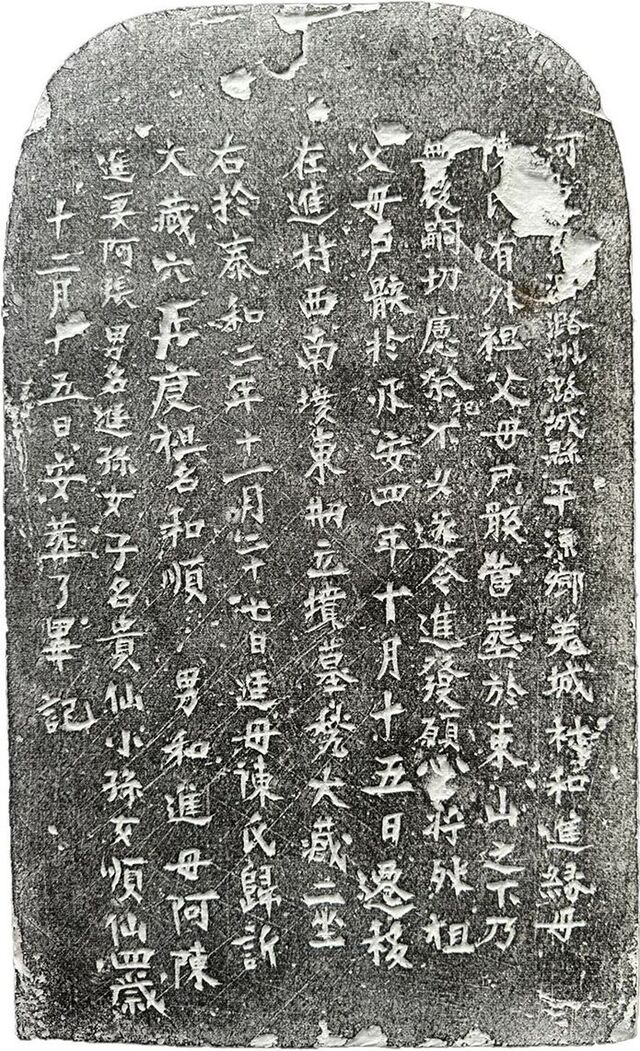 河潞州潞城縣平源鄉羌城村和進緣母
陳氏有外祖父母尸骸當葬於東山之下乃
無後嗣切慮祭祀不遂令進發願將外祖
父母尸骸於承安四年十月十五日遷移
在進村西南境東刱立墳墓甃大藏二坐
右於泰和二年十一月二十七日進母陳氏歸
大藏穴祖名和順男和進母阿陳
進妻阿張男名進孫女子名貴仙小孫女順仙四歲
十二月十五日安葬了畢記